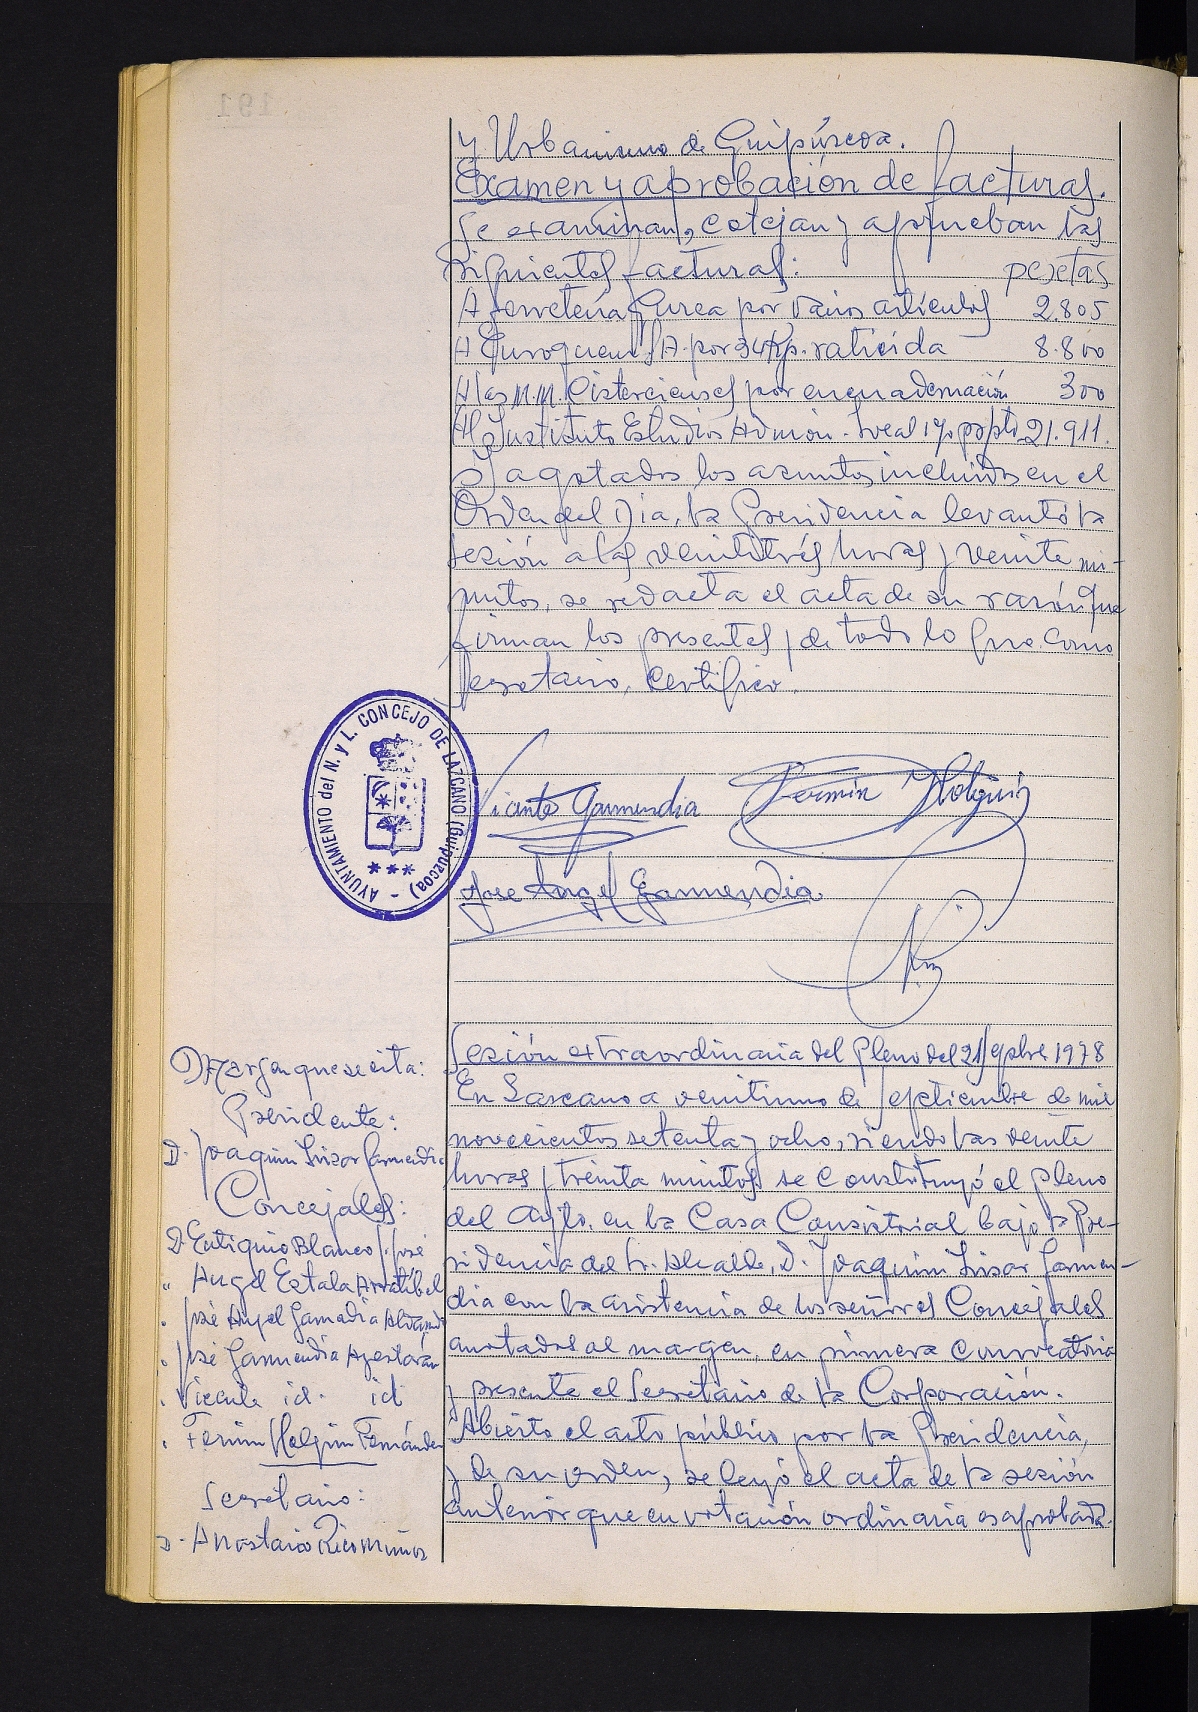 y Urbanismo de Guipúzcoa.
Examen y aprobación de facturas.
Se examinan, cotejan y aprueban las
siguientes facturas: pesetas
A ferretería Gurea por varios artículos 2.805
A S.A. por 34 Kp. raticida 8.800
A las M.M. Cistercienses por encuadernación 300
Al Instituto Estudios Admón. Local 1% ppto 21.911.
Y agotados los asuntos incluidos en el
Orden del Día, la Presidencia levantó la
sesión a las veintitrés horas y veinte mi-
nutos, se redacta el acta de su razón que
firman los presentes y de todo lo que como
Secretario, certifico.
AYUNTAMIENTO del N. y L. CONCEJO DE LAZCANO (Guipúzcoa) -
Vicente Garmendia Fermin Holguin
Jose Angel Garmendia
Sesión extraordinaria del Pleno del 21 Sepbre 1978
En Lazcano a veintiuno de Septiembre de mil
novecientos setenta y ocho, siendo las veinte
horas y treinta minutos se constituyó el Pleno
del Ayto. en la Casa Consistorial bajo la Pre-
sidencia del Sr. Alcalde, D. Joaquín Irizar Garmen-
dia con la asistencia de los señores Concejales
anotados al margen, en primera convocatoria
y presente el Secretario de la Corporación.
Abierto el acto público por la Presidencia,
y de su orden, se leyó el acta de la sesión
anterior que en votación ordinaria es aprobada.
Margen que se cita:
Presidente:
D. Joaquín Irizar Garmendia
Concejales:
D. Eutiquio Blanco S. José
" Angel Estala Arratibel
" José Angel Garmendia
" José Garmendia Azestarán
" Vicente id. id
" Fermin Holguin Fernández
Secretario:
D. Anastasio Rico Muñoz